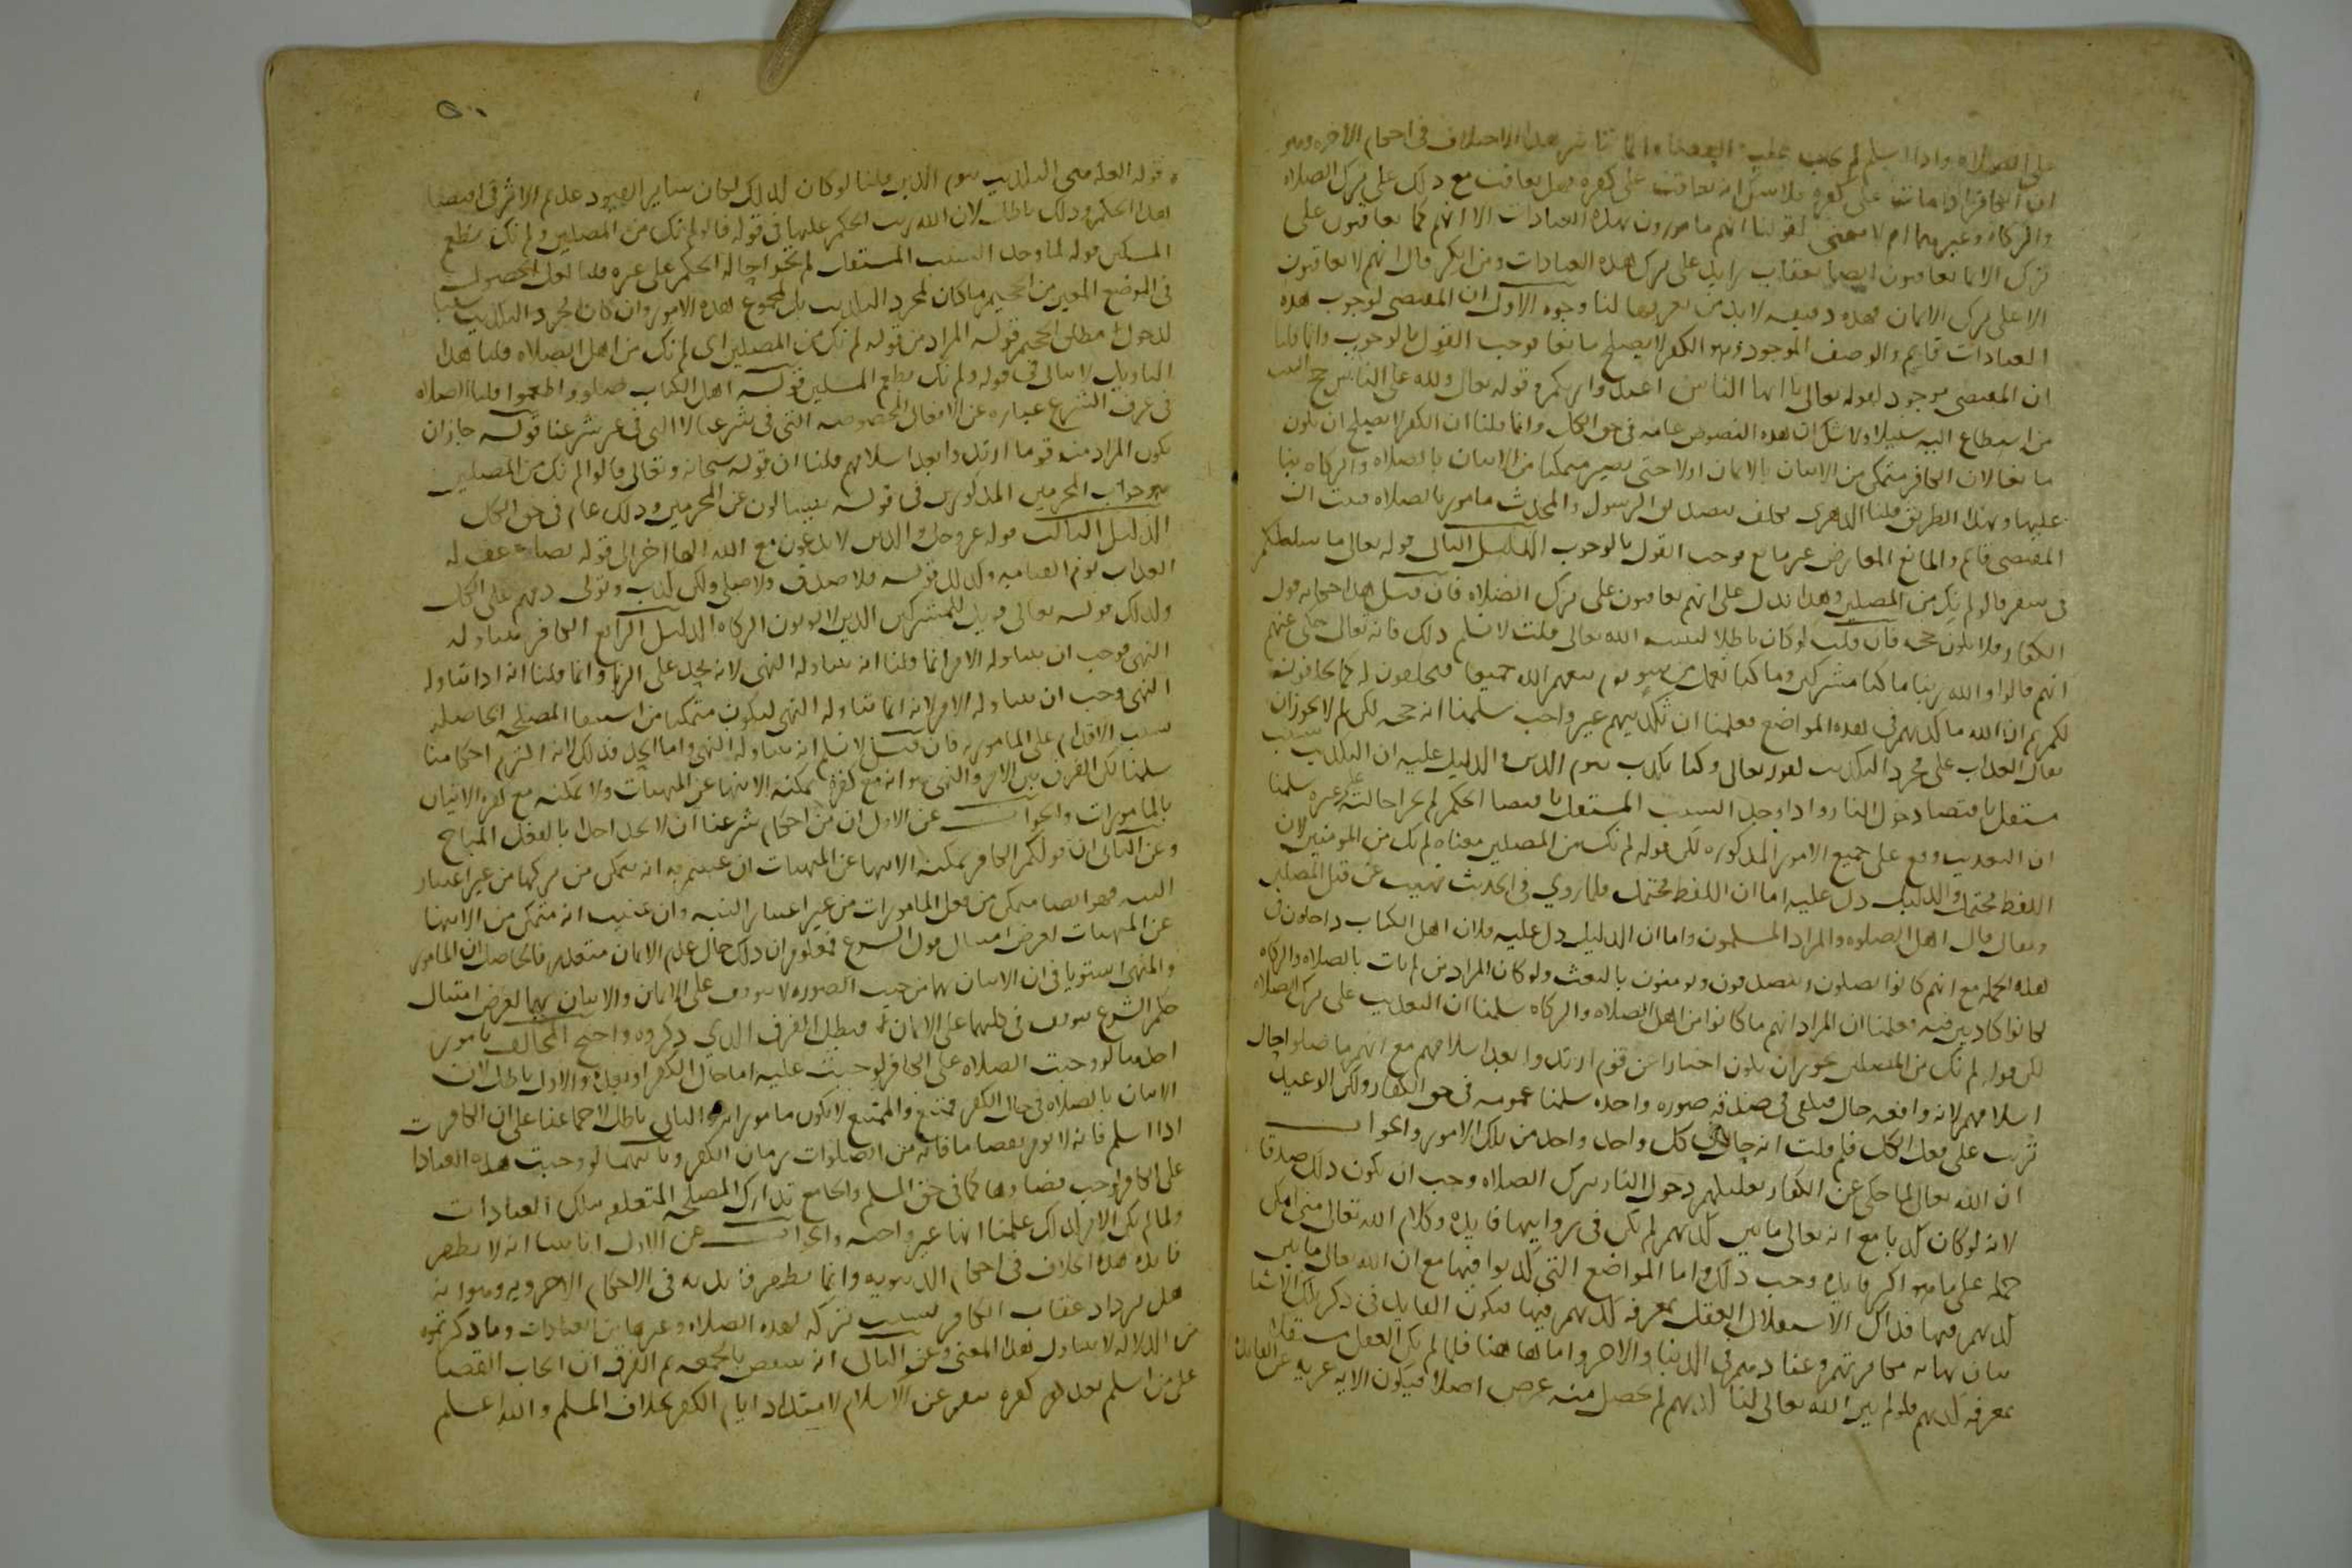 على الصلاة واذا اسلم لم يجب عليه القضا وانما تاثير هذا الاختلاف في احكام الاخره وهو
ان الكافر اذا مات على كفره فلا شك انه يعاقب على كفره وهل يعاقب مع ذلك على ترك الصلاه
والزكاه وغيرهما ام لا معنى لقولنا انهم مامورون بهذه العبادات الا انهم كما يعاقبون على
ترك الايمان يعاقبون ايضا بعقاب زايد على ترك هذه العبادات ومن انكر قال انهم لا يعاقبون
الا على ترك الايمان فهذه دقيقه لا بد من تعريفها لنا وجوه الاول ان المقتضي لوجوب هذه
العبادات قايم والوصف الموجود وهو الكفر لا يصلح مانعا فوجب القول بالوجوب وانما قلنا
ان المقتضي موجود لقوله تعالى يا ايها الناس اعبدوا ربكم وقوله تعالى ولله على الناس حج البيت
من استطاع اليه سبيلا ولا شك ان هذه النصوص عامه في حق الكل وانما قلنا ان الكفر لا يصلح ان يكون
مانعا لان الكافر متمكن من الاتيان بالايمان اولا حتى يصير متمكنا من الاتيان بالصلاه والزكاه بنا
عليها وبهذا الطريق قلنا الدهري مكلف بتصديق الرسول والمحدث مامور بالصلاه فثبت ان
المقتضي قايم والمانع المعارض غير مانع فوجب القول بالوجوب الدليل الثاني قوله تعالى ما سلككم
في سقر قالوا لم نك من المصلين وهذا يدل على انهم يعاقبون على ترك الصلاه فان قيل هذا حكايه قول
الكفار فلا يكون حجه فان قلت لو كان باطلا لبينه الله تعالى قلت لا نسلم ذلك فانه تعالى حكى عنهم
انهم قالوا والله ربنا ما كنا مشركين وما كنا نعمل من سو يوم يبعثهم الله جميعا فيحلفون له كما يحلفون
لكم ثم ان الله ما كذبهم في هذه المواضع فعلمنا ان تكذيبهم غير واجب سلمنا انه حجه لكن لم لا يجوز ان
يقال العذاب على مجرد التكذيب لقوله تعالى وكنا نكذب بيوم الدين والدليل عليه ان التكذيب سبب
مستقل باقتضا دخول النار واذا وجد السبب المستقل باقتضا الحكم لم يجز احالته على غيره سلمنا
ان التعذيب وقع على جميع الامور المذكوره لكن قوله لم نك من المصلين معناه لم نك من المومنين لان
اللفظ محتمل والدليل دل عليه اما ان اللفظ محتمل فلما روي في الحديث نهيت عن قتل المصلين
ويقال قال اهل الصلوه والمراد المسلمون واما ان الدليل دل عليه فلان اهل الكتاب داخلون في
هذه الجمله مع انهم كانوا يصلون ويتصدقون ويومنون بالبعث ولو كان المراد من لم يات بالصلاه والزكاه
لكانوا كاذبين فيه فعلمنا ان المراد انهم ما كانوا من اهل الصلاه والزكاه سلمنا ان التعذيب على ترك الصلاه
لكن قوله لم نك من المصلين يجوز ان يكون اخبارا عن قوم ارتدوا بعد اسلامهم مع انهم ما صلوا حال
اسلامهم لانه واقعه حال فيكفي في صدقه صوره واحده سلمنا عمومه في حق الكفار ولكن الوعيد
ترتب على فعل الكل فلم قلت انه حاصل في كل واحد واحد من تلك الامور والجواب
ان الله تعالى لما حكى عن الكفار تعليلهم دخول النار بترك الصلاه وجب ان يكون ذلك صدقا
لانه لو كان كذبا مع انه تعالى ما بين كذبهم لم يكن في روايتها فايده وكلام الله تعالى متى امكن
حمله على ما هو اكثر فايده وجب ذلك واما المواضع التي كذبوا فيها مع ان الله تعالى ما بين
كذبهم فيها فذاك لاستقلال العقل بمعرفه كذبهم فيها فيكون الفايده في ذكر تلك الاشيا
بيان نهايه مكابرتهم وعنادهم في الدنيا والاخره واما هاهنا فلما لم يكن العقل مستقلا
بمعرفه كذبهم فلو لم يبين الله تعالى لنا كذبهم لم يحصل منه غرض اصلا فيكون الايه عريه عن الفايده
قوله العله هي التكذيب بيوم الدين قلنا لو كان كذلك لكان ساير القيود عديم الاثر في اقتضا
هذا الحكم وذلك باطل لان الله رتب الحكم عليها في قوله قالوا لم نك من المصلين ولم نك نطعم
المسكين قوله لما وجد السبب المستقل لم يجز احاله الحكم على غيره قلنا لعل الحصول
في الموضع المعين من الجحيم ما كان لمجرد التكذيب بل لمجموع هذه الامور وان كان مجرد التكذيب سببا
لدخول مطلق الجحيم قوله المراد من قوله لم نك من المصلين اي لم نك من اهل الصلاه قلنا هذا
التاويل لا يتاتى في قوله ولم نك نطعم المسكين قوله اهل الكتاب صلوا واطعموا قلنا الصلاه
في عرف الشرع عباره عن الافعال المخصوصه التي في شرعنا لا التي في غير شرعنا قوله جاز ان
يكون المراد منه قوما ارتدوا بعد اسلامهم قلنا ان قوله سبحانه وتعالى قالوا لم نك من المصلين
هو جواب المجرمين المذكورين في قوله يتسالون عن المجرمين وذلك عام في حق الكل
الدليل الثالث قوله عز وجل والذين لا يدعون مع الله الها اخر الى قوله يضاعف له
العذاب يوم القيامه وكذلك قوله فلا صدق ولا صلى ولكن كذب وتولى ذمهم على الكل
وكذلك قوله تعالى فويل للمشركين الذين لا يوتون الزكاه الدليل الرابع الكافر يتناوله
النهي فوجب ان يتناوله الامر انما قلنا انه يتناوله النهي لانه يحد على الزنا وانما قلنا انه اذا تناوله
النهي وجب ان يتناوله الامر لانه انما تناوله النهي ليكون متمكنا من استيفا المصلحه الحاصله
بسبب الاقدام على المامور به فان قيل لا نسلم انه يتناوله النهي واما الحد فذلك لانه التزم احكامنا
سلمنا لكن الفرق بين الامر والنهي هو انه مع كفره يمكنه الانتها عن المنهيات ولا يمكنه مع كفره الاتيان
بالمامورات والجواب عن الاول ان من احكام شرعنا ان لا يحد احد بالفعل المباح
وعن الثاني ان قولكم الكافر يمكنه الانتها عن المنهيات ان عنيتم به انه يتمكن من تركها من غير اعتبار
النيه فهو ايضا متمكن من فعل المامورات من غير اعتبار النيه وان عنيتم انه متمكن من الانتها
عن المنهيات لغرض امتثال قول الشرع فمعلوم ان ذلك حال عدم الايمان متعذر فالحاصل ان المامور
والمنهي استويا في ان الاتيان بهما من حيث الصوره لا يتوقف على الايمان والاتيان بهما لغرض امتثال
حكم الشرع يتوقف في كليهما على الايمان فبطل الفرق الذي ذكروه واحتج المخالف بامور
احدها لو وجبت الصلاه على الكافر لوجبت عليه اما حال الكفر او بعده والاول باطل لان
الاتيان بالصلاه في حال الكفر ممتنع والممتنع لا يكون مامورا به والثاني باطل لاجماعنا على ان الكافر
اذا اسلم فانه لا يومر بقضا ما فاته من الصلوات زمان الكفر وثانيهما لو وجبت هذه العبادات
على الكافر لوجب قضاوها كما في حق المسلم والجامع تدارك المصلحه المتعلقه بتلك العبادات
ولما لم يكن الامر كذلك علمنا انها غير واجبه والجواب عن الاول انا بينا انه لا يظهر
فايده هذه الخلاف في احكام الدنيويه وانما يظهر فايدته في الاحكام الاخرويه وهو انه
هل يزداد عقاب الكافر بسبب تركه لهذه الصلاه وغيرها من العبادات وما ذكرتموه
من الدلاله لا يتناول هذا المعنى وعن الثاني انه ينتقض بالجمعه ثم الفرق ان ايجاب القضا
على من اسلم بعد كفره ينفر عن الاسلام لامتداد ايام الكفر بخلاف المسلم والله اعلم